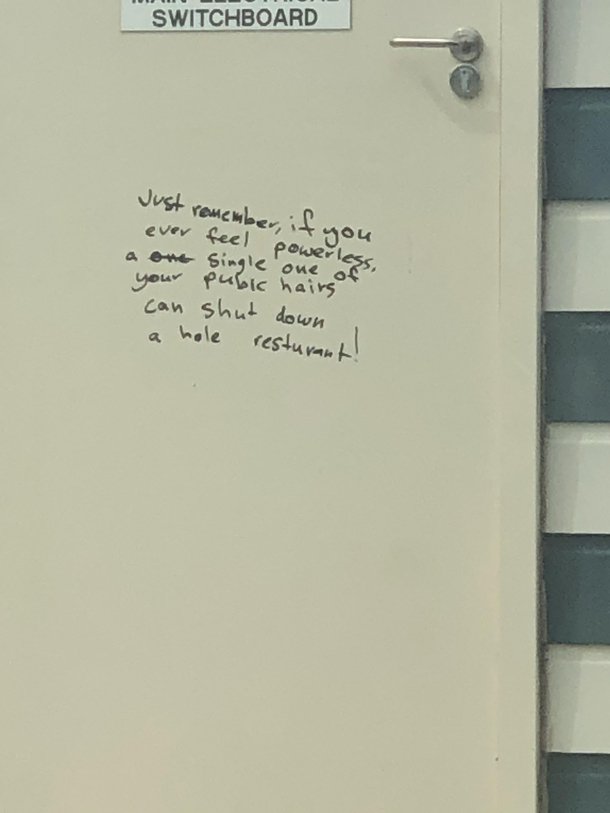 MAIN ELECTRICAL
SWITCHBOARD
Just remember, if you
ever feel powerless,
a one single one of
your pubic hairs
can shut down
a hole resturant!